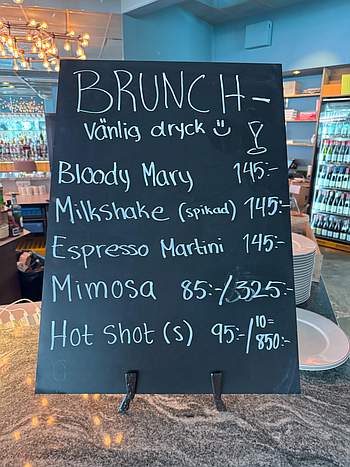 BRUNCH-
Vänlig dryck
Bloody Mary 145:-
Milkshake (spikad) 145:-
Espresso Martini 145:-
Mimosa 85:-/325:-
Hot Shot (s) 95:-/10= 850:-